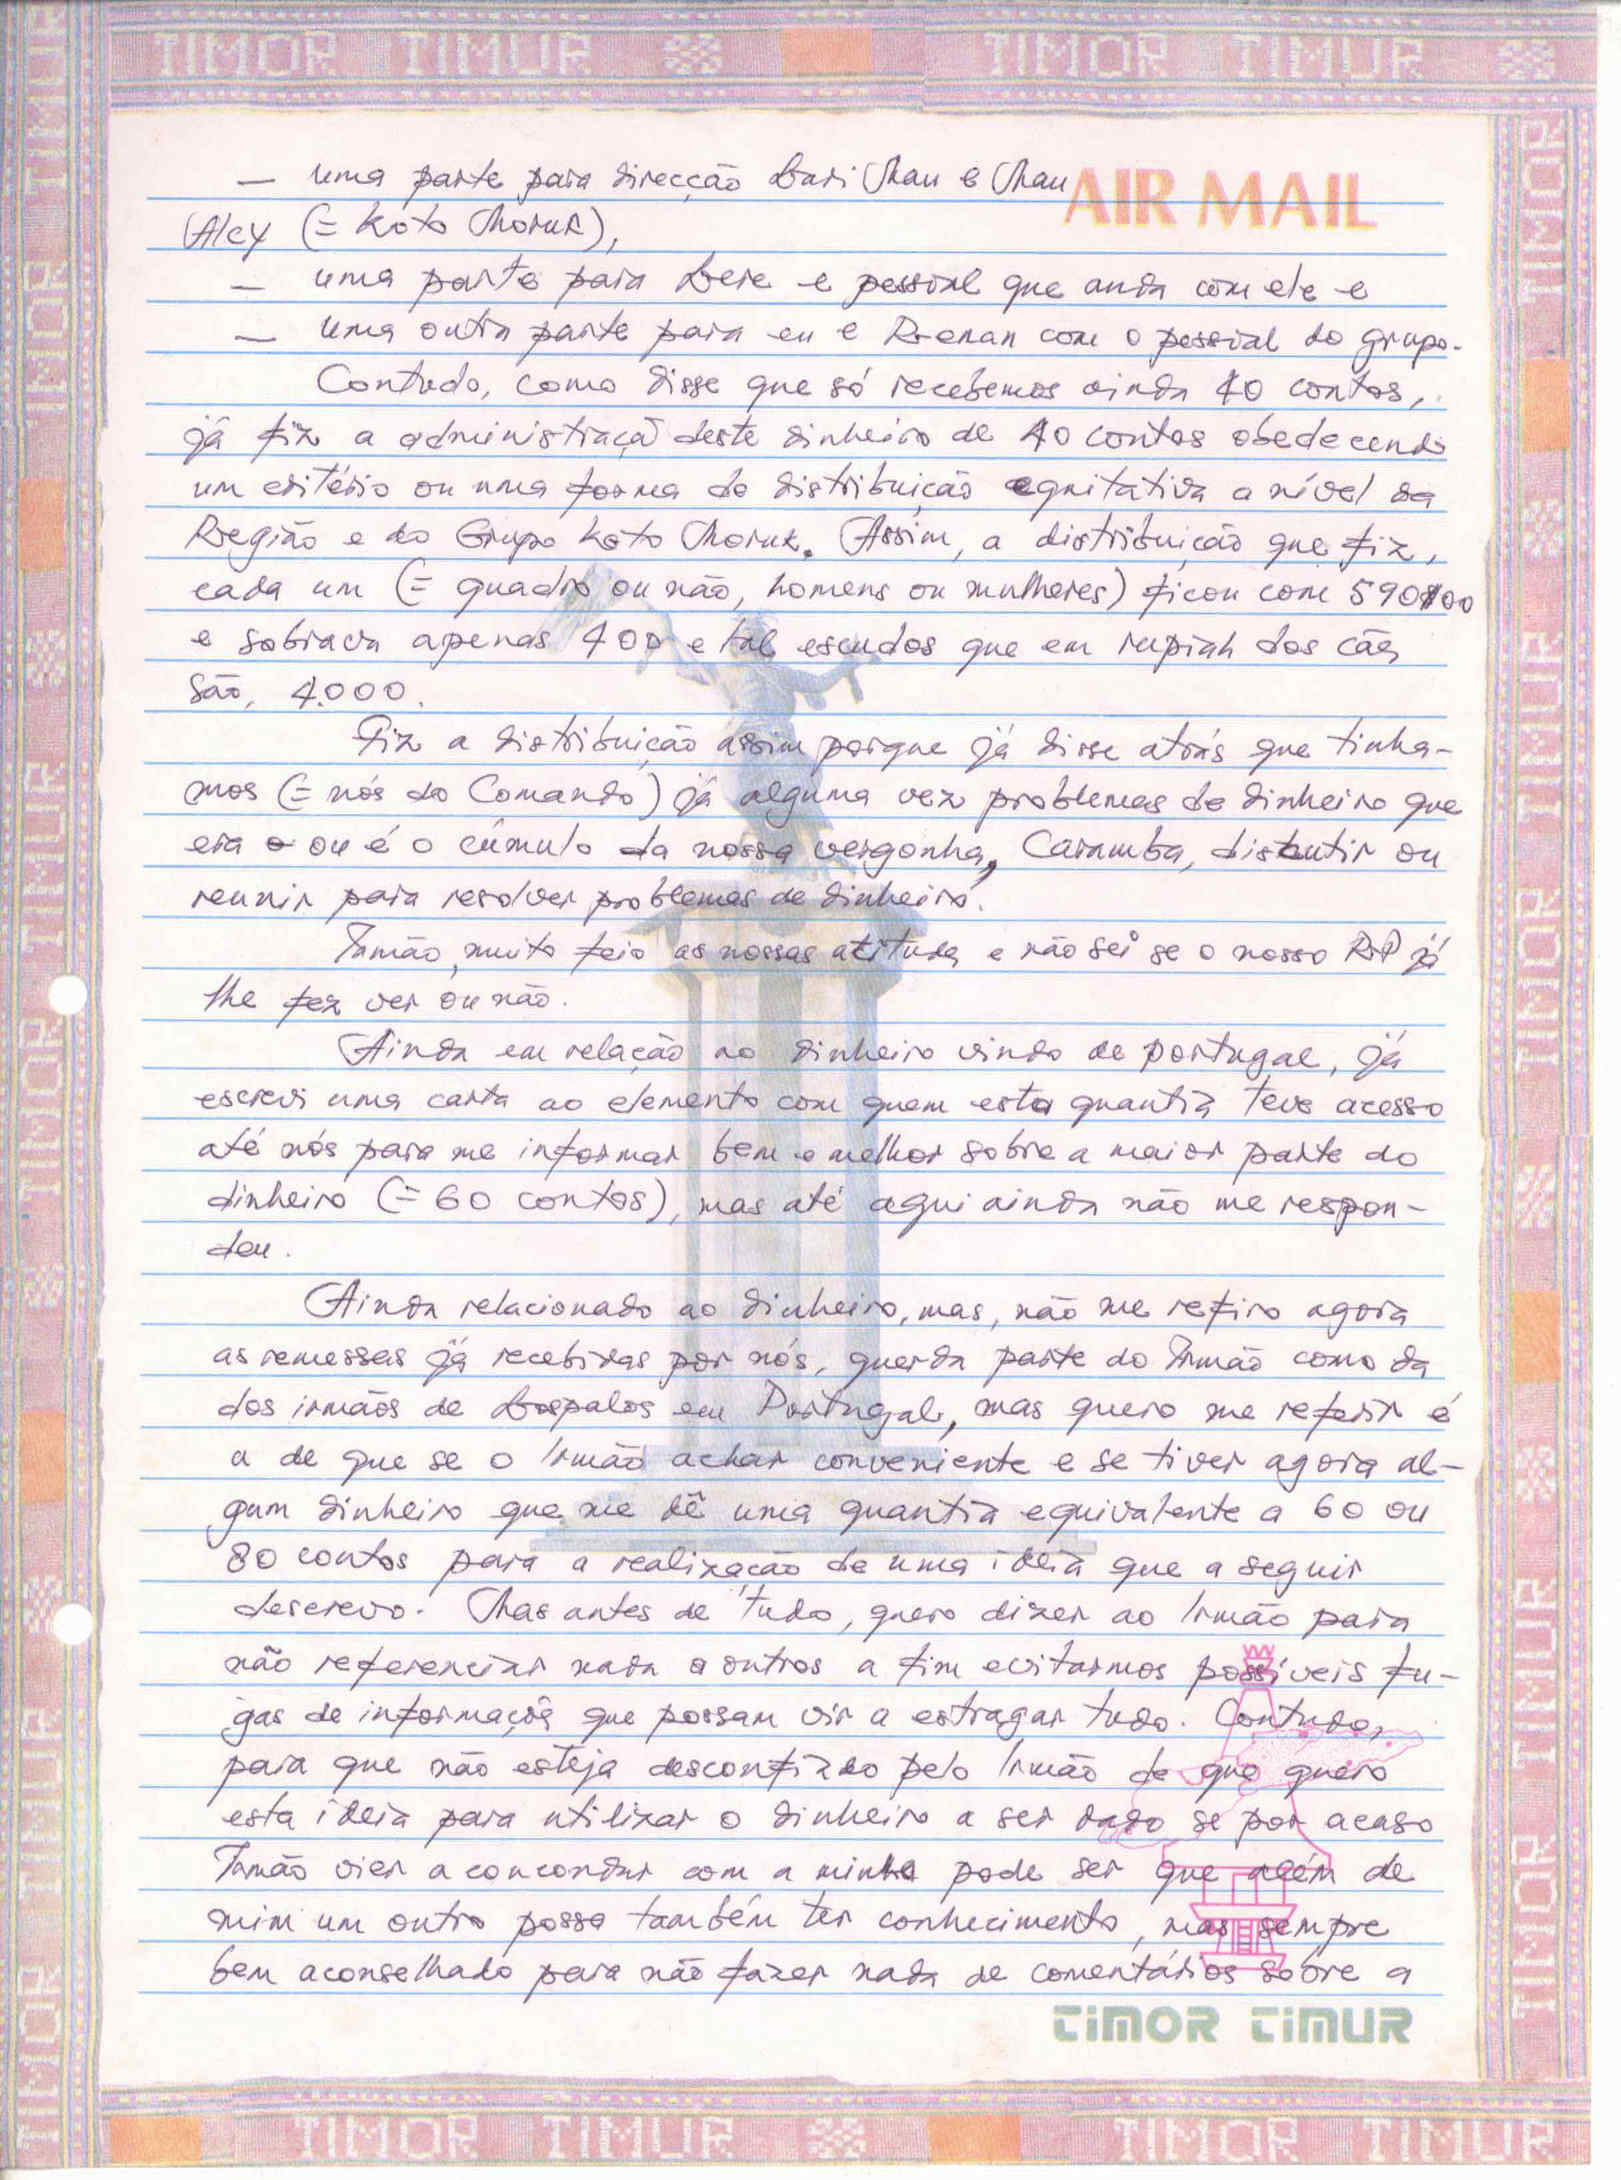 TIMOR TIMUR TIMOR TIMUR
AIR MAIL
— uma parte para direcção Lari Mau e Mau
Alex (= Koto Moruk),
— uma parte para Lere e pessoal que anda com ele e
— uma outra parte para eu e Renan com o pessoal do grupo.
Contudo, como disse que só recebemos ainda 40 contos,
já fiz a administração deste dinheiro de 40 contos obedecendo
um critério ou uma forma de distribuição equitativa a nível da
Região e do Grupo Koto Moruk. Assim, a distribuição que fiz,
cada um (= quadro ou não, homens ou mulheres) ficou com 590$00
e sobrava apenas 400 e tal escudos que em rupiah dos cães
são, 4.000.
Fiz a distribuição assim porque já disse atrás que tinha-
mos (= nós do Comando) já alguma vez problemas de dinheiro que
era ou é o cúmulo da nossa vergonha, Caramba, discutir ou
reunir para resolver problemas de dinheiro.
Irmão, muito feio as nossas atitudes e não sei se o nosso já
lhe fez ver ou não.
Ainda em relação ao dinheiro vindo de portugal, já
escrevi uma carta ao elemento com quem esta quantia teve acesso
até nós para me informar bem e melhor sobre a maior parte do
dinheiro (= 60 contos), mas até aqui ainda não me respon-
deu.
Ainda relacionado ao dinheiro, mas, não me refiro agora
as remessas já recebidas por nós, quer da parte do Irmão como da
dos irmãos de Lospalos em Portugal, mas quero me referir é
a de que se o Irmão achar conveniente e se tiver agora al-
gum dinheiro que me dê uma quantia equivalente a 60 ou
80 contos para a realização de uma ideia que a seguir
descrevo. Mas antes de tudo, quero dizer ao Irmão para
não referenciar nada a outros a fim evitarmos possíveis fu-
gas de informação que possam vir a estragar tudo. Contudo,
para que não esteja desconfiado pelo Irmão de que quero
esta ideia para utilizar o dinheiro a ser dado se por acaso
Irmão vier a concordar com a minha pode ser que além de
mim um outro possa também ter conhecimento, mas sempre
bem aconselhado para não fazer nada de comentários sobre a
TIMOR TIMUR
TIMOR TIMUR TIMOR TIMUR